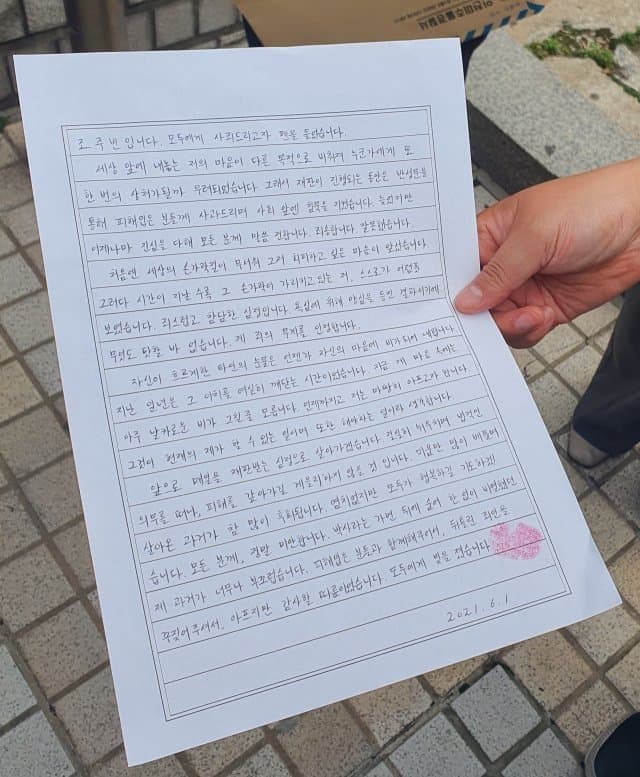 조주빈입니다. 모두에게 사죄드리고자 펜을 들었습니다.
세상 앞에 내놓는 저의 마음이 다른 목적으로 비춰져 누군가에게 또
한 번의 상처가될까 우려되었습니다 그래서 재판이 진행되는 동안은 반성문을
통해 피해입은 분들께 사과드리며 사회 앞엔 침묵을 지켰습니다. 늦었지만
이제나마 진심을 다해 모든 분께 마음 전합니다. 죄송합니다 잘못했습니다.
처음엔 세상의 손가락질이 무서워 그저 회피하고 싶은 마음이 앞섰습니다.
그러다 시간이 지날 수록 그 손가락이 가리키고 있는 저, 스스로가 어떤품
보였습니다. 죄스럽고 참담한 심정입니다. 욕심에 취해 양심을 등진 결과이기에
무엇도 탓할 바 없습니다. 제 죄의 무게를 인정합니다.
자신이 흐르게한 타인의 눈물은 언젠가 자신의 마음에 비가되어 내립니다
지난 일년은 그 이치를 여실히 깨닫는 시간이었습니다. 지금 제 마음 속에는
아주 날카로운 비가 그칠줄 모릅니다 언제까지고 저는 마땅히 아프고자 합니다.
그것이 현재의 제가 할 수 있는 일이며 또한 해야하는 일이라 생각합니다
앞으로 매일을 재판받는 심정으로 살아가겠습니다. 성실히 뉘우치며 법적인
의무를 떠나, 피해를 갚아가길 게을리하지 않을 것 입니다. 미움만 많이 베풀며
살아온 과거가 참 많이 후회됩니다. 염치없지만 모두가 행복하길 기도하겠
습니다. 모든 분께, 정말 미안합니다. 박사라는 가면 뒤에 숨어 한 없이 비열했던
제 과거가 너무나 부끄럽습니다. 피해입은 분들과 함께해주어서, 뒤틀린 죄인을
꾸짖어주셔서, 아프지만 감사할 따름이었습니다. 모두에게 빚을 졌습니다
2021. 6. 1